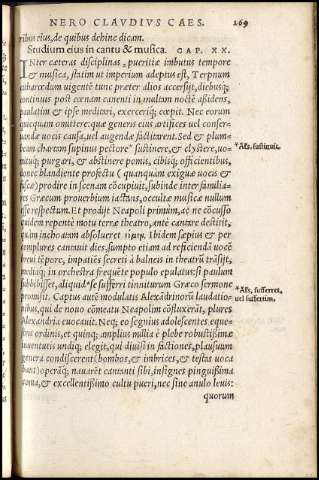 NERO CLAVDIVS CAES. 269
ribus eius, de quibus dehinc dicam.
Studium eius in cantu & musica. CAP. XX.
INter cæteras disciplinas, pueritiæ imbutus tempore
& musica, statim ut imperium adeptus est, Terpnum
citharœdum uigente tunc præter alios accersijt, diebusq;
continuis post cœnam canenti in multam nocte aßidens,
paulatim & ipse meditari, exerceriq; cœpit. Nec eorum
quicquam omittere: quæ generis eius artifices uel conser-
uandæ uocis causa, uel augendæ factitarent. Sed & plum-
beam chartam supinus pectore* sustinere, & clystere, uo-
mituq; purgari, & abstinere pomis, cibisq; officientibus,
donec blandiente profectu (quanquam exiguæ uocis &
fuscæ) prodire in scenam cōcupiuit, subinde inter familia-
res Græcum prouerbium iactans, occultæ musicæ nullum
esse respectum. Et prodijt Neapoli primum, ac ne cōcusso
quidem repente motu terræ theatro, ante cantare destitit,
quàm inchoatum absolueret νόμον. Ibidem sæpius & per
complures cantauit dies, sumpto etiam ad reficiendā uocē
breui tēpore, impatiēs secreti à balneis in theatrū trāsijt,
mediaq; in orchestra frequēte populo epulatus: si paulum
subbibisset, aliquid *se sufferri tinniturum Græco sermone
promisit. Captus autē modulatis Alexādrinorū laudatio-
nibus, qui de nouo cōmeatu Neapolim cōfluxerāt, plures
Alexandria euocauit. Neq; eo segnius adolescentes eque-
stris ordinis, et quinq; amplius millia è plebe robustißimæ
iuuentutis undiq; elegit, qui diuisi in factiones, plausuum
genera condiscerent (bombos, & imbrices, & testas uoca
bant) operāq; nauarēt cantanti sibi, insignes pinguißima
coma, & excellentißimo cultu pueri, nec sine anulo leuis:
quorum
*Als, sustinuit.
*Als, sufferret,
uel suffertim.